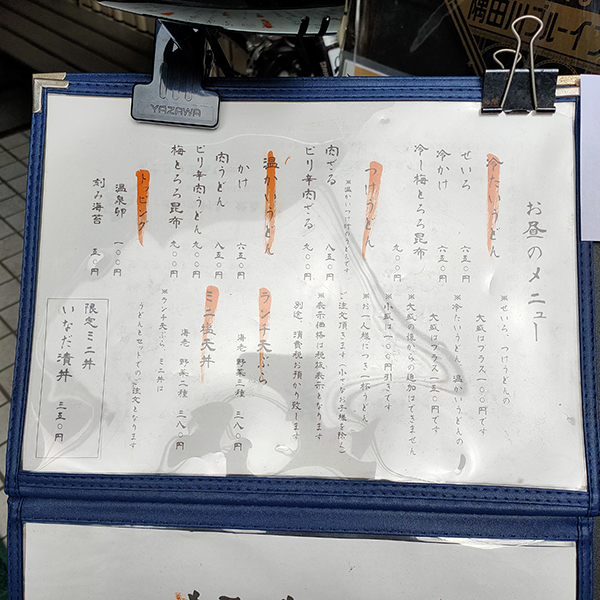 隅田川ブルーイン
YAZAWA
お昼のメニュー
冷たいうどん
せいろ 六五〇円
冷かけ 六五〇円
冷し梅とろろ昆布 九〇〇円
つけうどん
※温かいつけ汁のうどんです
肉ざる 八五〇円
ピリ辛肉ざる 九〇〇円
温かいうどん
かけ 六五〇円
肉うどん 八五〇円
ピリ辛肉うどん 九〇〇円
梅とろろ昆布 九〇〇円
トッピング
温泉卵 一〇〇円
刻み海苔 五〇円
※せいろ、つけうどんの
大盛はプラス一〇〇円です
※冷たいうどん、温かいうどんの
大盛はプラス一五〇円です
※大盛の後からの追加はできません
※小盛は一〇〇円引きです
※お一人様につき一杯うどん
ご注文頂きます(小さなお子様を除く)
※表示価格は税抜表示となります
別途、消費税お預かり致します
ランチ天ぷら
海老 野菜二種 三八〇円
ミニ塩天丼
海老 野菜二種 三八〇円
※ランチ天ぷら、ミニ丼は
うどんとセットでのご注文となります
限定ミニ丼
いなだ漬丼
三五〇円